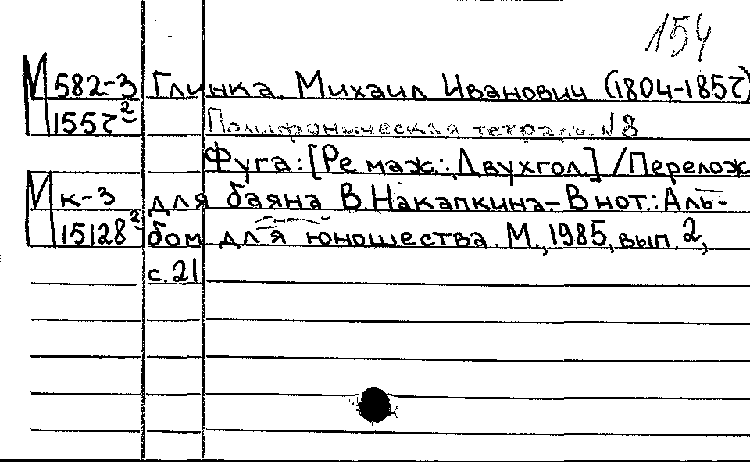 154
М 582-3 Глинка, Михаил Иванович (1804-1857)
1557² Полифоническая тетрадь. №8
Фуга: [Ре маж.: Двухгол.] / Перелож.
М к-3 для баяна В. Накапкина – В нот.: Аль-
15128² бом для юношества. М., 1985, вып. 2,
с. 21